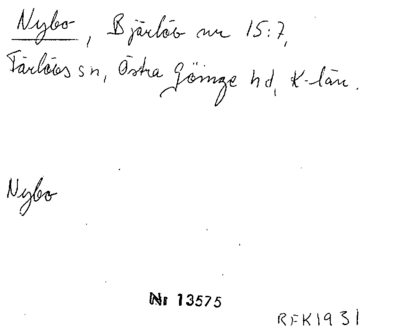 Nybo, Bjärlöv nr 15:7,
Färlövs sn, Östra Göinge hd, K-län.
Nybo
Nr 13575
RFK1931